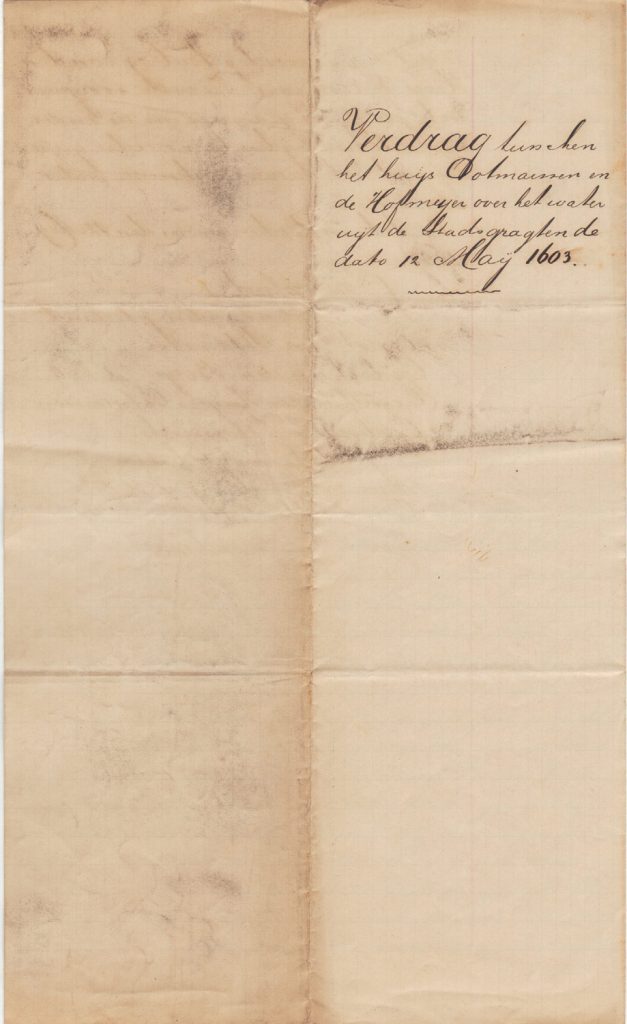 Verdrag tusschen
het huijs Ootmarssen en
de Hofmeyer over het water
uijt de Stadsgragten de
dato 12 Maÿ 1603.